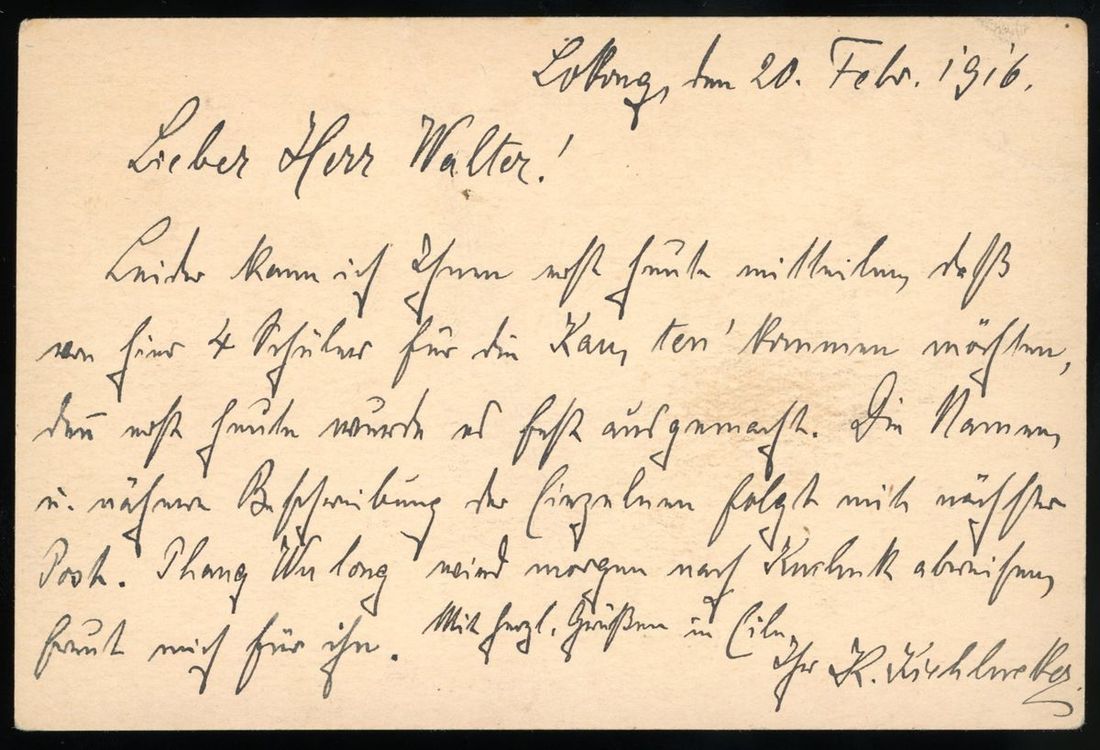 Lokong, den 20. Febr. 1916.
Lieber Herr Walter!
Leider kann ich Ihnen erst heute mitteilen, daß
von hier 4 Schüler für die kommen möchten,
denn erst heute wurde es fest ausgemacht. Die Namen
u. nähere Beschreibung der Einzelnen folgt mit nächster
Post. Phang Wu long wird morgen nach abreisen,
freut mich für ihn. Mit herzl. Grüßen in Eile,
Ihr K.